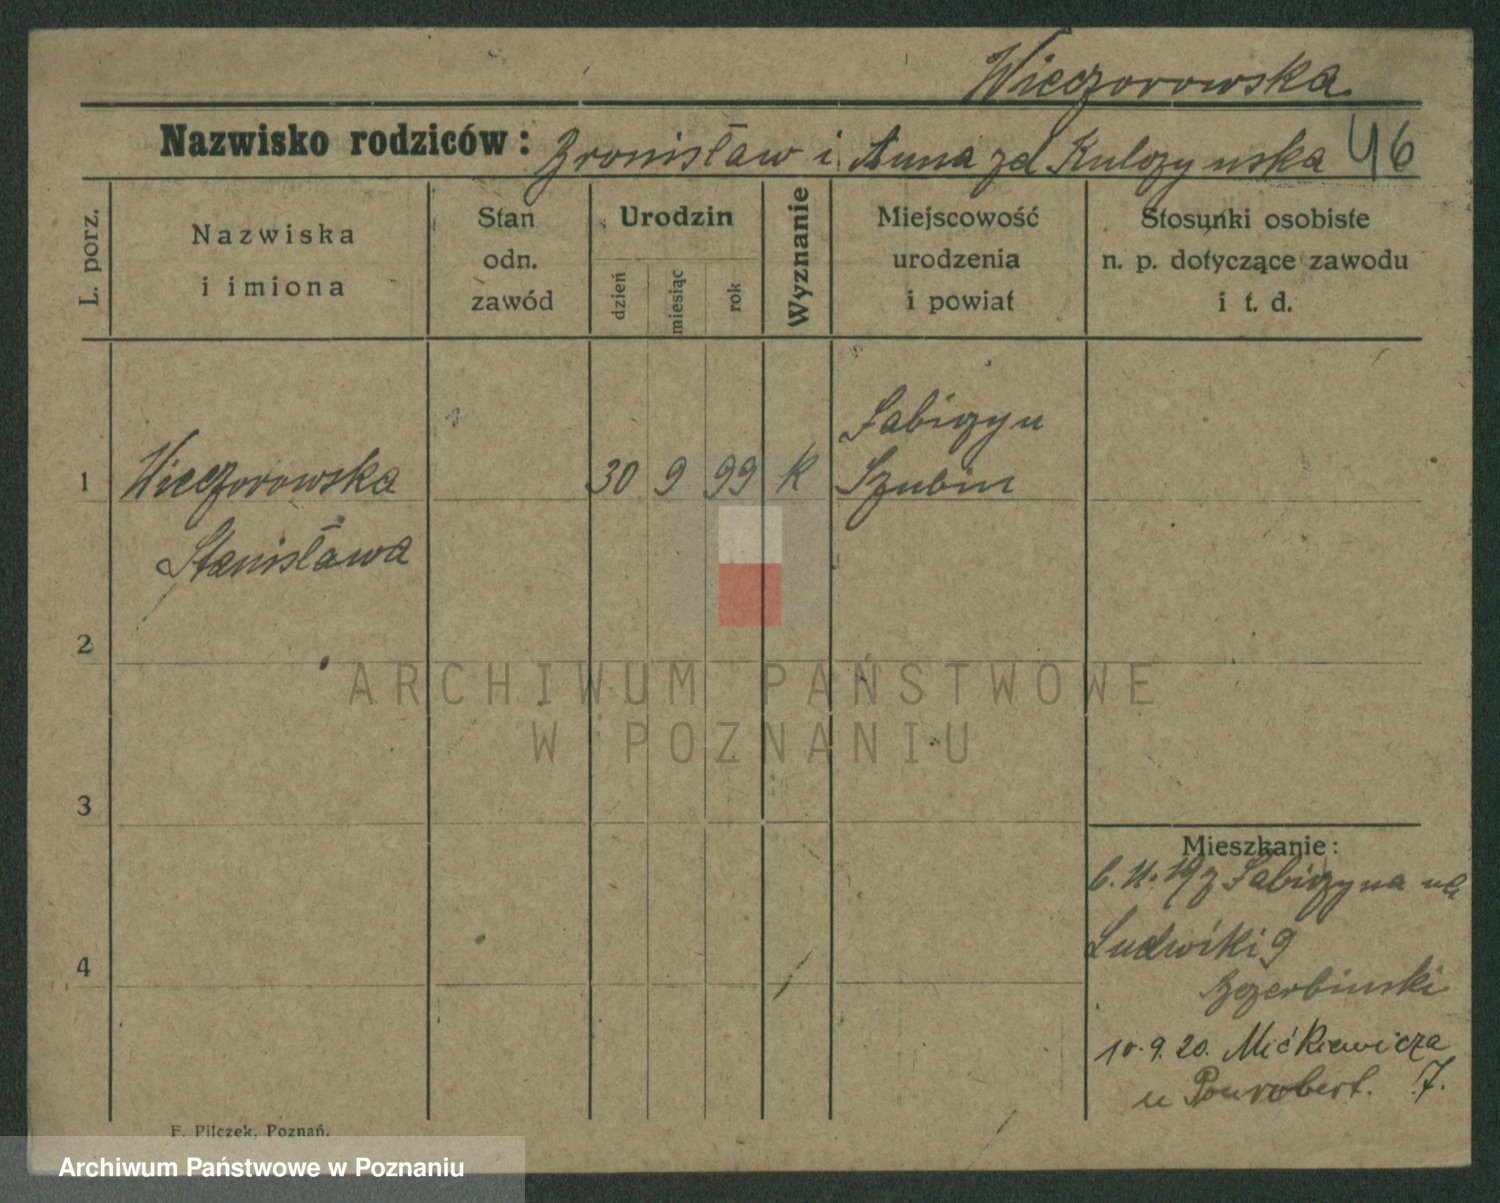 Wieczorowska
Nazwisko rodziców: Bronisław i Anna zd Kulczynska 46
L. porz.
Nazwiska
i imiona
Stan
odn.
zawód
Urodzin
dzień
miesiąc
rok
Wyznanie
Miejscowość
urodzenia
i powiat
Stosunki osobiste
n. p. dotyczące zawodu
i t. d.
1 Wieczorowska 30 9 99 k
Stanisława
Szubin
2
3
4
Mieszkanie:
6.11.19 z na
Ludwiki 9
10.9.20. Mickiewicza
u 7.
F. Pilczek, Poznań.
ARCHIWUM PAŃSTWOWE
W POZNANIU
Archiwum Państwowe w Poznaniu